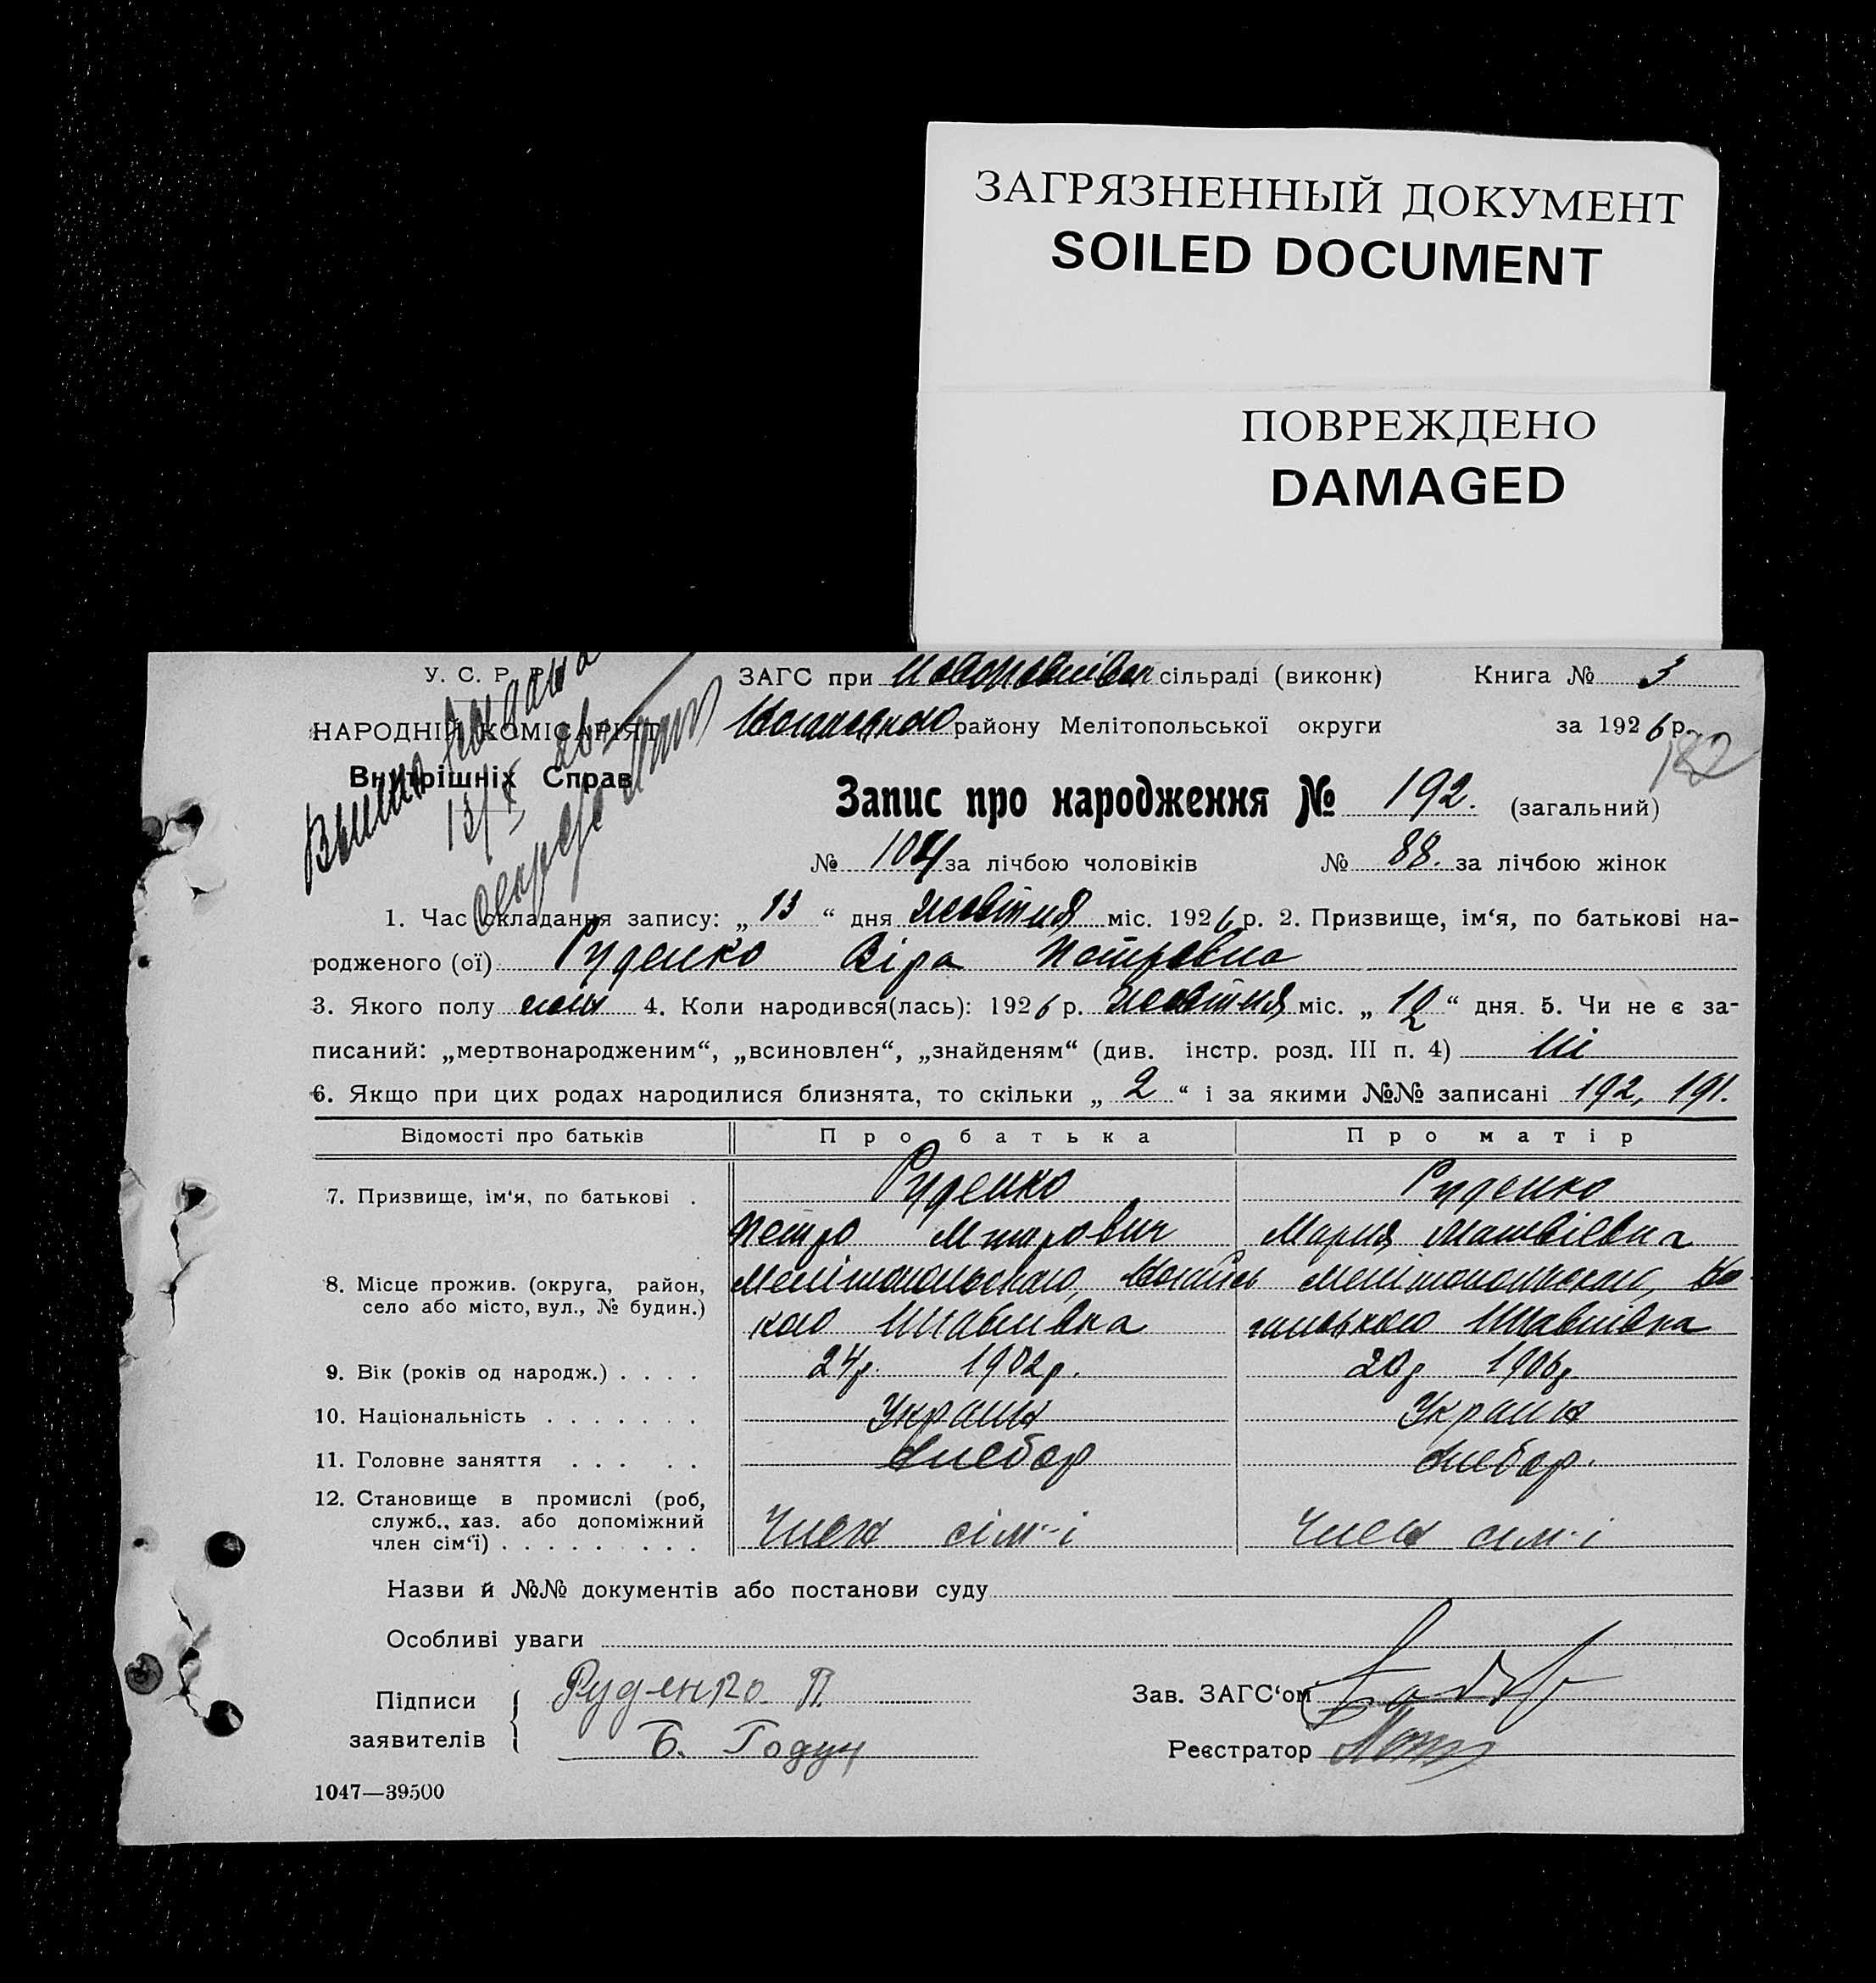 ЗАГРЯЗНЕННЫЙ ДОКУМЕНТ
SOILED DOCUMENT
ПОВРЕЖДЕНО
DAMAGED
У. С. Р. Р.
НАРОДНІЙ КОМІСАРІЯТ
Внутрішніх Справ
13/X
ЗАГС при сільраді (виконк) Книга № 3
району Мелітопольської округи за 1926 р.
182
Запис про народження № 192. (загальний)
№ 104 за лічбою чоловіків № 88. за лічбою жінок
1. Час складання запису: „ 13 “ дня жовтня міс. 1926 р. 2. Призвище, ім‘я, по батькові на-
родженого (ої) Руденко Віра Петровна
3. Якого полу жін 4. Коли народився(лась): 1926 р. жовтня міс. „ “ дня. 5. Чи не є за-
писаний: „мертвонародженим“, „всиновлен“, „знайденям“ (див. інстр. розд. III п. 4) Ні
6. Якщо при цих родах народилися близнята, то скільки „ 2 “ і за якими №№ записані 192, 191.
Відомості про батьків Про батька Про матір
7. Призвище, ім‘я, по батькові . Руденко Руденко
Петро Мария Матвіевна
8. Місце прожив. (округа, район, Мелітопольского, Мелітопольского,
село або місто, вул., № будин.)
9. Вік (років од народж.) . . . . 24р. 1902р. 20р 1906р
10. Національність . . . . . . . Украин Украин
11. Головне заняття . . . . . Хлебор Хлебор.
12. Становище в промислі (роб,
служб., хаз. або допоміжний
член сім‘ї) . . . . . . . . . Член сім-і Член сім-і
Назви й №№ документів або постанови суду
Особливі уваги
Підписи заявителів { Руденко П
Б. Годун
Зав. ЗАГС‘ом
Реєстратор
1047—39500